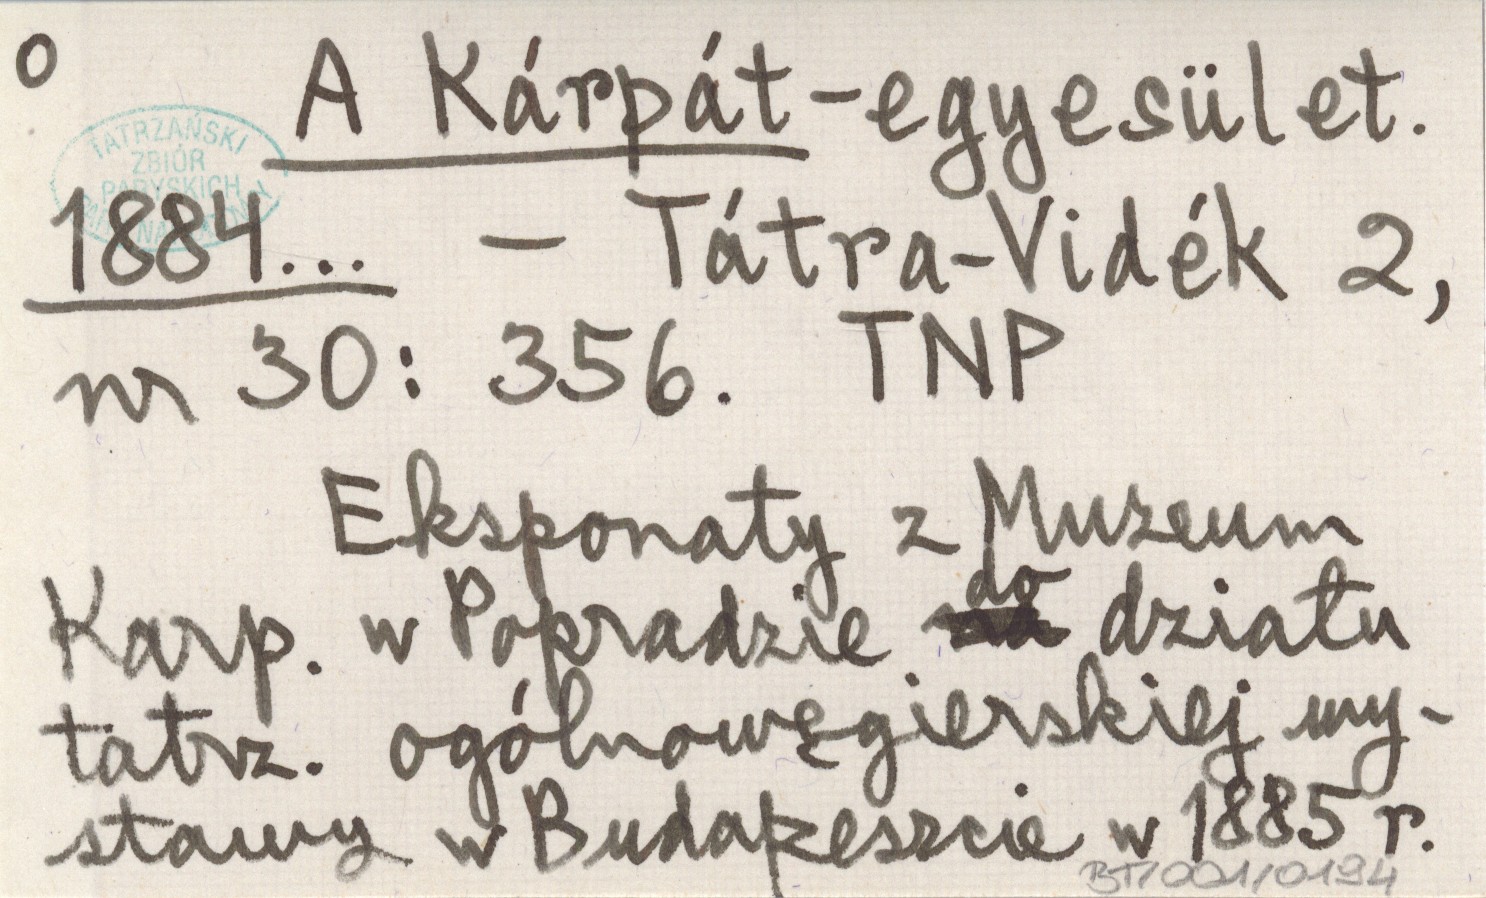 O A Kárpát-egyesület.
TATRZAŃSKI
ZBIÓR
PARYSKICH
1884... — Tátra-Vidék 2,
nr 30: 356. TNP
Eksponaty z Muzeum
Karp. w Popradzie do działu
tatrz. ogólnowęgierskiej wy-
stawy w Budapeszcie w 1885 r.
BT/001/0194